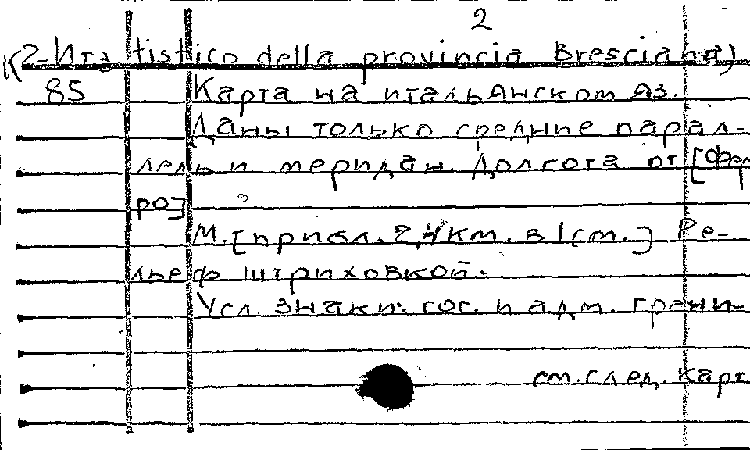 2
К2-Ита tistico della provincia Bresciana)
85 Карта на итальянском яз.
Даны только средние парал-
лель и меридиан. Долгота от [Фер
ро]
М. [прибл. 2,4км. в 1см.] Ре-
льеф штриховкой.
Усл. знаки: гос. и адм. грани-
см. след. карт